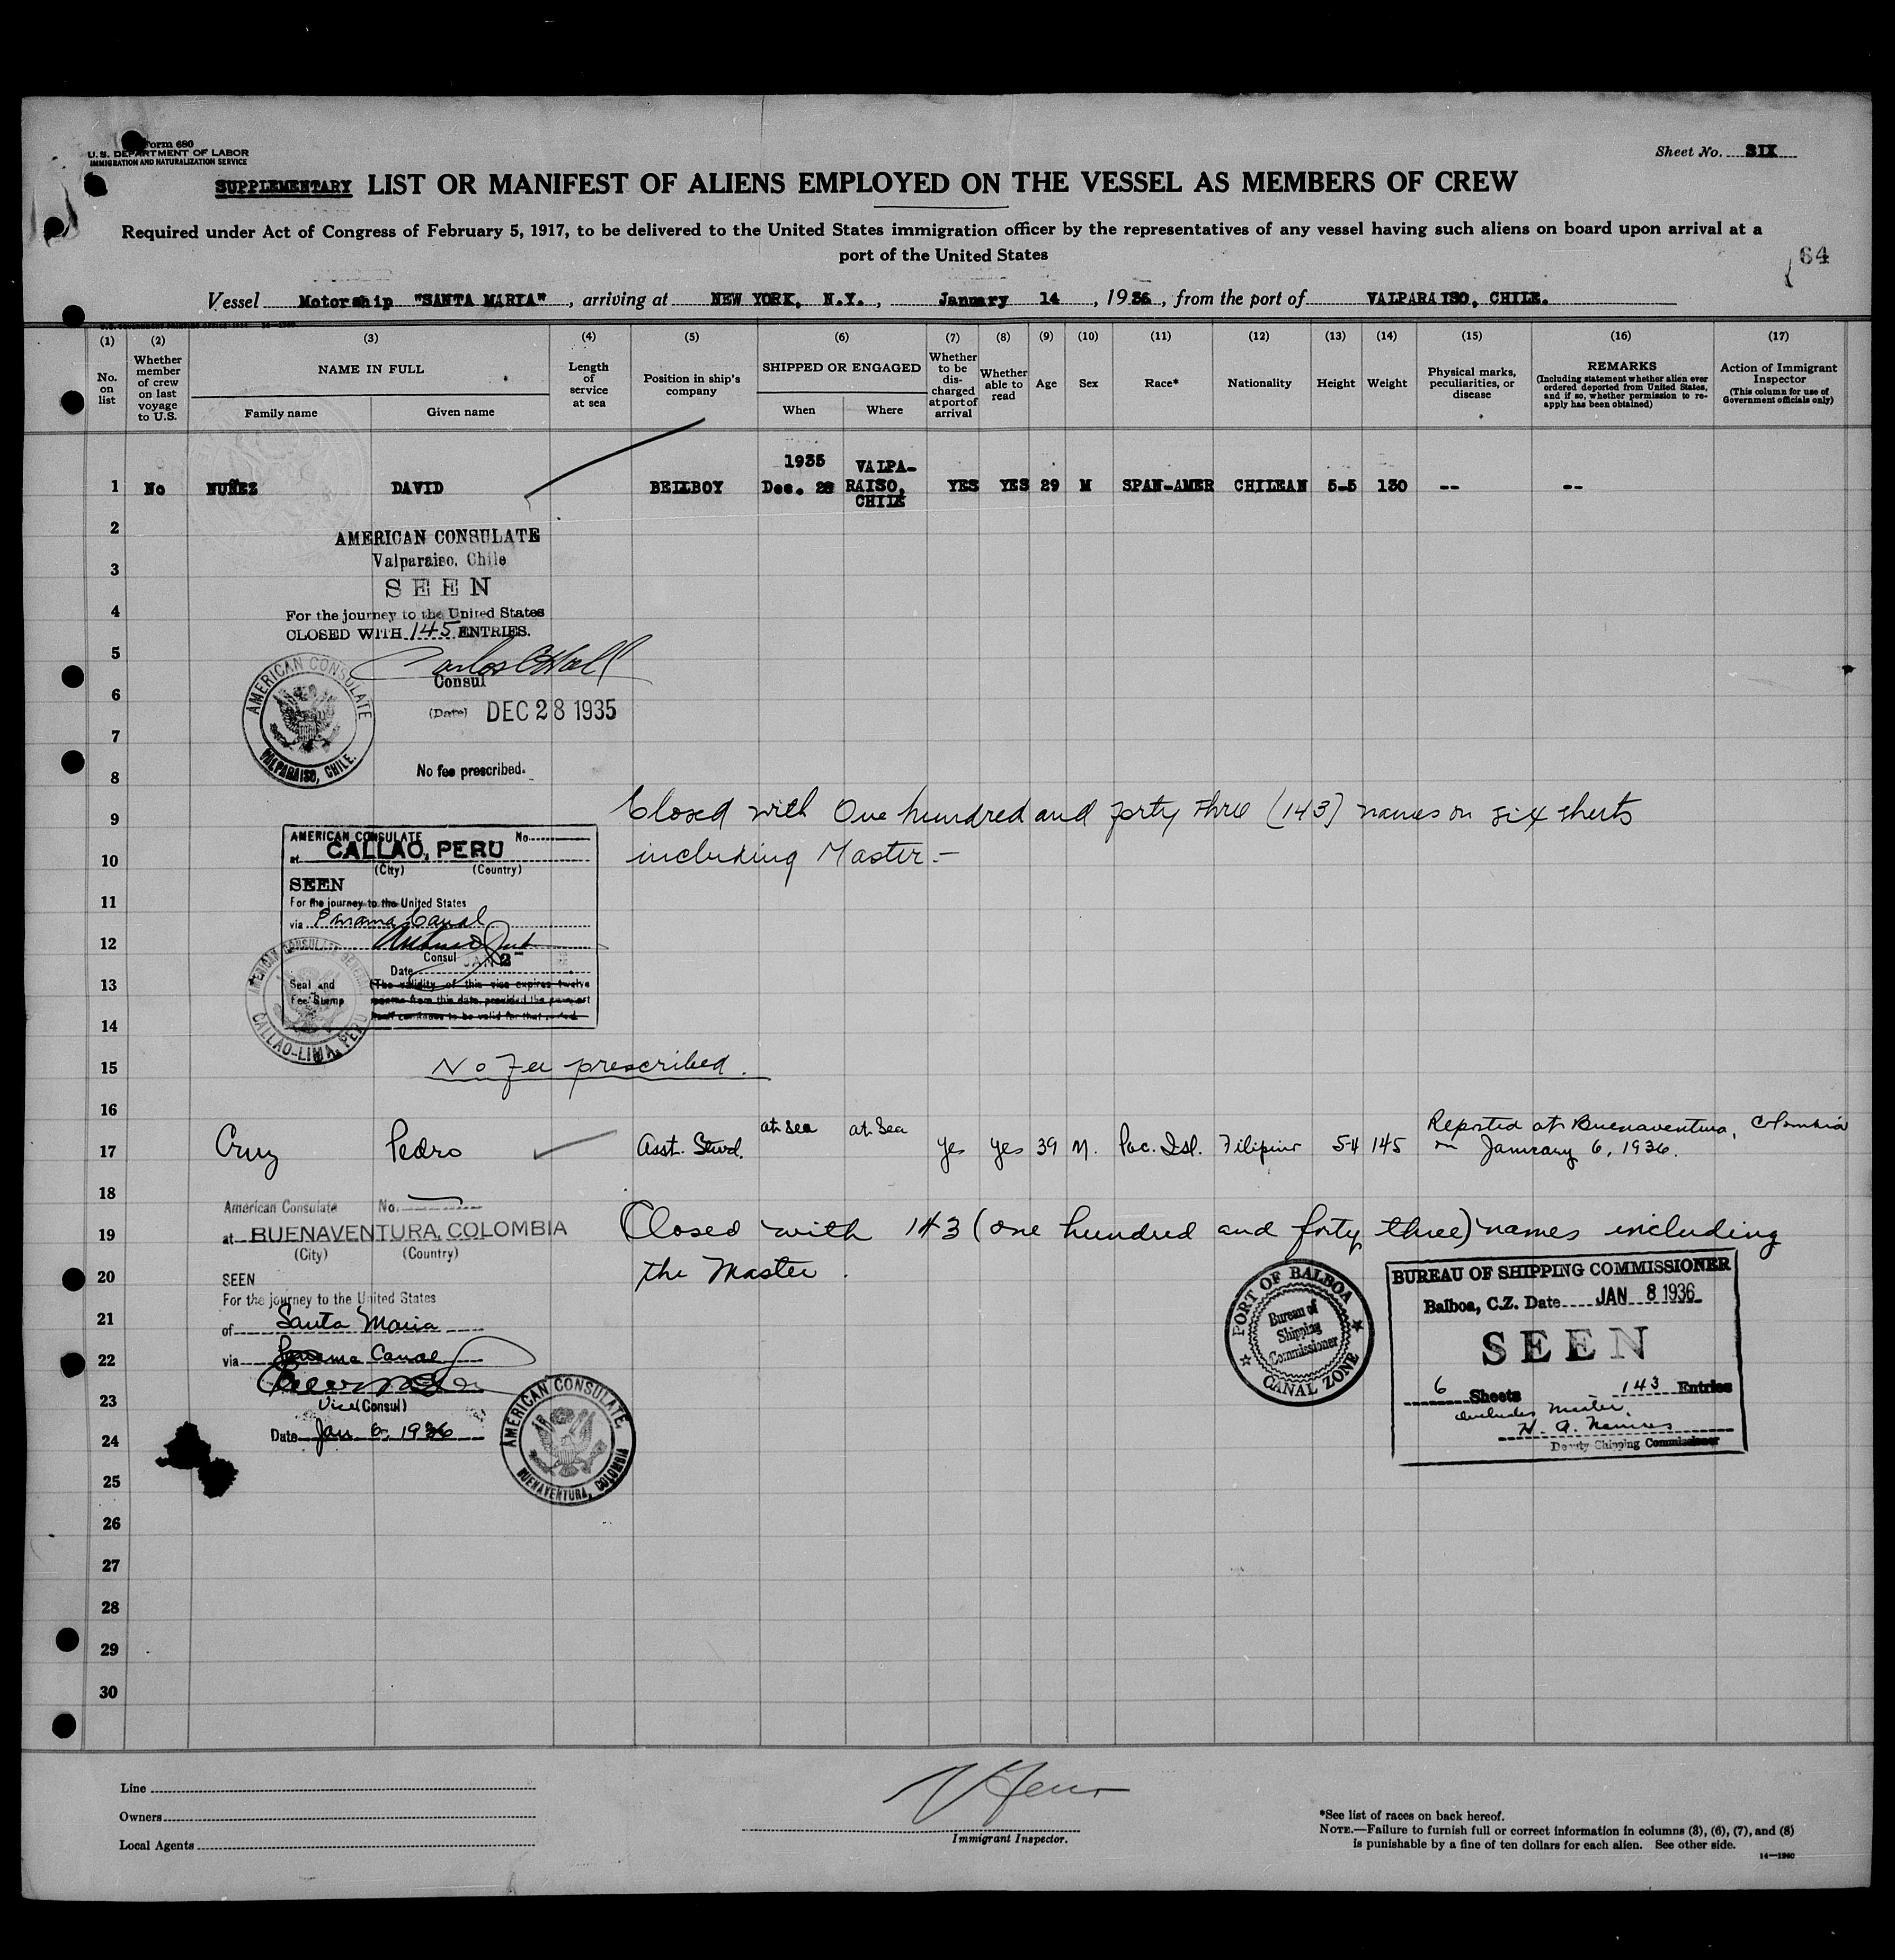 Form 680
U. S. DEPARTMENT OF LABOR
IMMIGRATION AND NATURALIZATION SERVICE
Sheet No. SIX
SUPPLEMENTARY LIST OR MANIFEST OF ALIENS EMPLOYED ON THE VESSEL AS MEMBERS OF CREW
Required under Act of Congress of February 5, 1917, to be delivered to the United States immigration officer by the representatives of any vessel having such aliens on board upon arrival at a
port of the United States
64
Vessel Motorship "SANTA MARIA", arriving at NEW YORK, N.Y., January 14, 1936, from the port of VALPARAISO, CHILE.
(1) (2) (3) (4) (5) (6) (7) (8) (9) (10) (11) (12) (13) (14) (15) (16) (17)
No. on list
Whether member of crew on last voyage to U.S.
NAME IN FULL
Family name
Given name
Length of service at sea
Position in ship's company
SHIPPED OR ENGAGED
When
Where
Whether to be discharged at port of arrival
Whether able to read
Age
Sex
Race*
Nationality
Height
Weight
Physical marks, peculiarities, or disease
REMARKS
(Including statement whether alien ever ordered deported from United States, and if so, whether permission to reapply has been obtained)
Action of Immigrant Inspector
(This column for use of Government officials only)
1 No NUÑEZ DAVID BELLBOY 1935 Dec. 28 VALPARAISO, CHILE YES YES 29 M SPAN-AMER CHILEAN 5-5 130 -- --
2
AMERICAN CONSULATE
Valparaiso, Chile
3
SEEN
4
For the journey to the United States
CLOSED WITH 145 ENTRIES.
5
Carlos C Hall
Consul
6
(Date) DEC 28 1935
AMERICAN CONSULATE
VALPARAISO, CHILE.
7
8
No fee prescribed.
9
Closed with One hundred and forty three (143) names on six sheets
10
including Master.-
AMERICAN CONSULATE No.
at CALLAO, PERU
(City) (Country)
SEEN
11
For the journey to the United States
via Panama Canal
12
Consul
Date JAN 2
13
Seal and
Fee Stamp
(The validity of this visa expires twelve
months from this date, provided the passport
itself continues to be valid for that period.
14
AMERICAN CONSULATE GENERAL
CALLAO-LIMA, PERU
15
No fee prescribed.
16
17 Cruz Pedro Asst. Stwd. at sea at Sea Yes Yes 39 M. Pac. Isl. Filipino 5-4 145 Reported at Buenaventura, Colombia
on January 6, 1936.
18
American Consulate No.
19
at BUENAVENTURA, COLOMBIA
(City) (Country)
Closed with 143 (one hundred and forty three) names including
the Master.
20
SEEN
For the journey to the United States
21
of Santa Maria
22
via Panama Canal
23
Vice (Consul)
24
Date Jan 6, 1936
AMERICAN CONSULATE
BUENAVENTURA, COLOMBIA
PORT OF BALBOA
Bureau of
Shipping
Commissioner
CANAL ZONE
BUREAU OF SHIPPING COMMISSIONER
Balboa, C.Z. Date JAN 8 1936
SEEN
6 Sheets 143 Entries
includes Master.
Deputy Shipping Commissioner
25
26
27
28
29
30
Line
Owners
Local Agents
Immigrant Inspector.
*See list of races on back hereof.
NOTE.—Failure to furnish full or correct information in columns (3), (6), (7), and (8)
is punishable by a fine of ten dollars for each alien. See other side.
14—1240